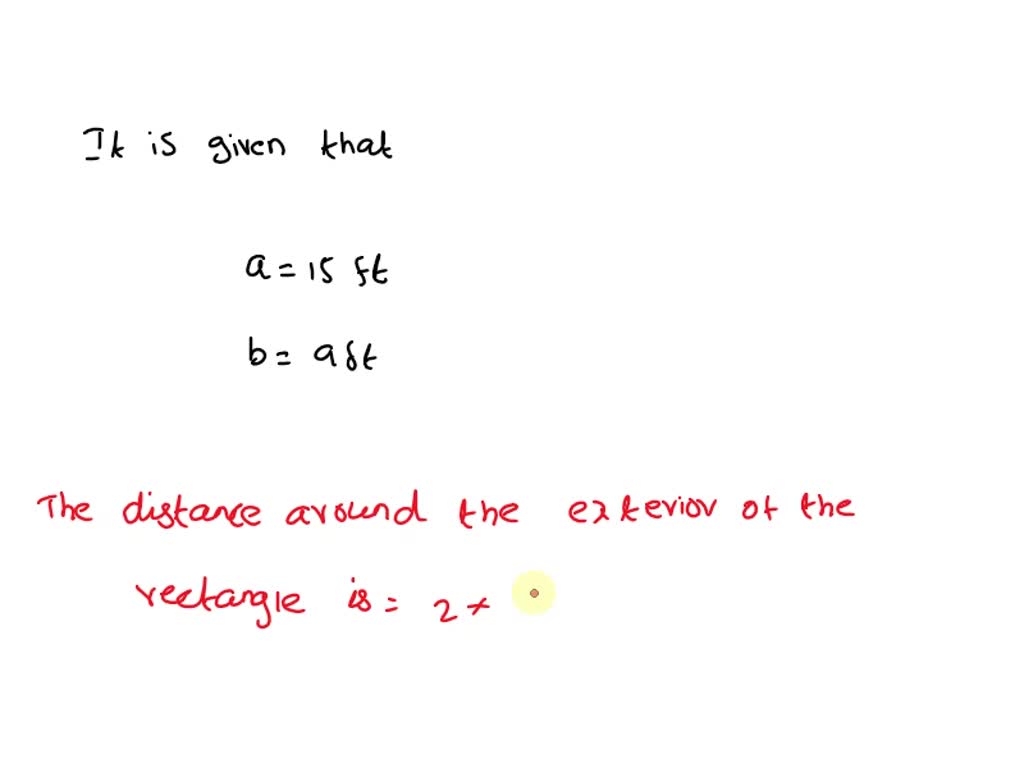 It is given that
a = 15 ft
b = 9 ft
The distance around the exterior of the
rectangle is = 2 ×